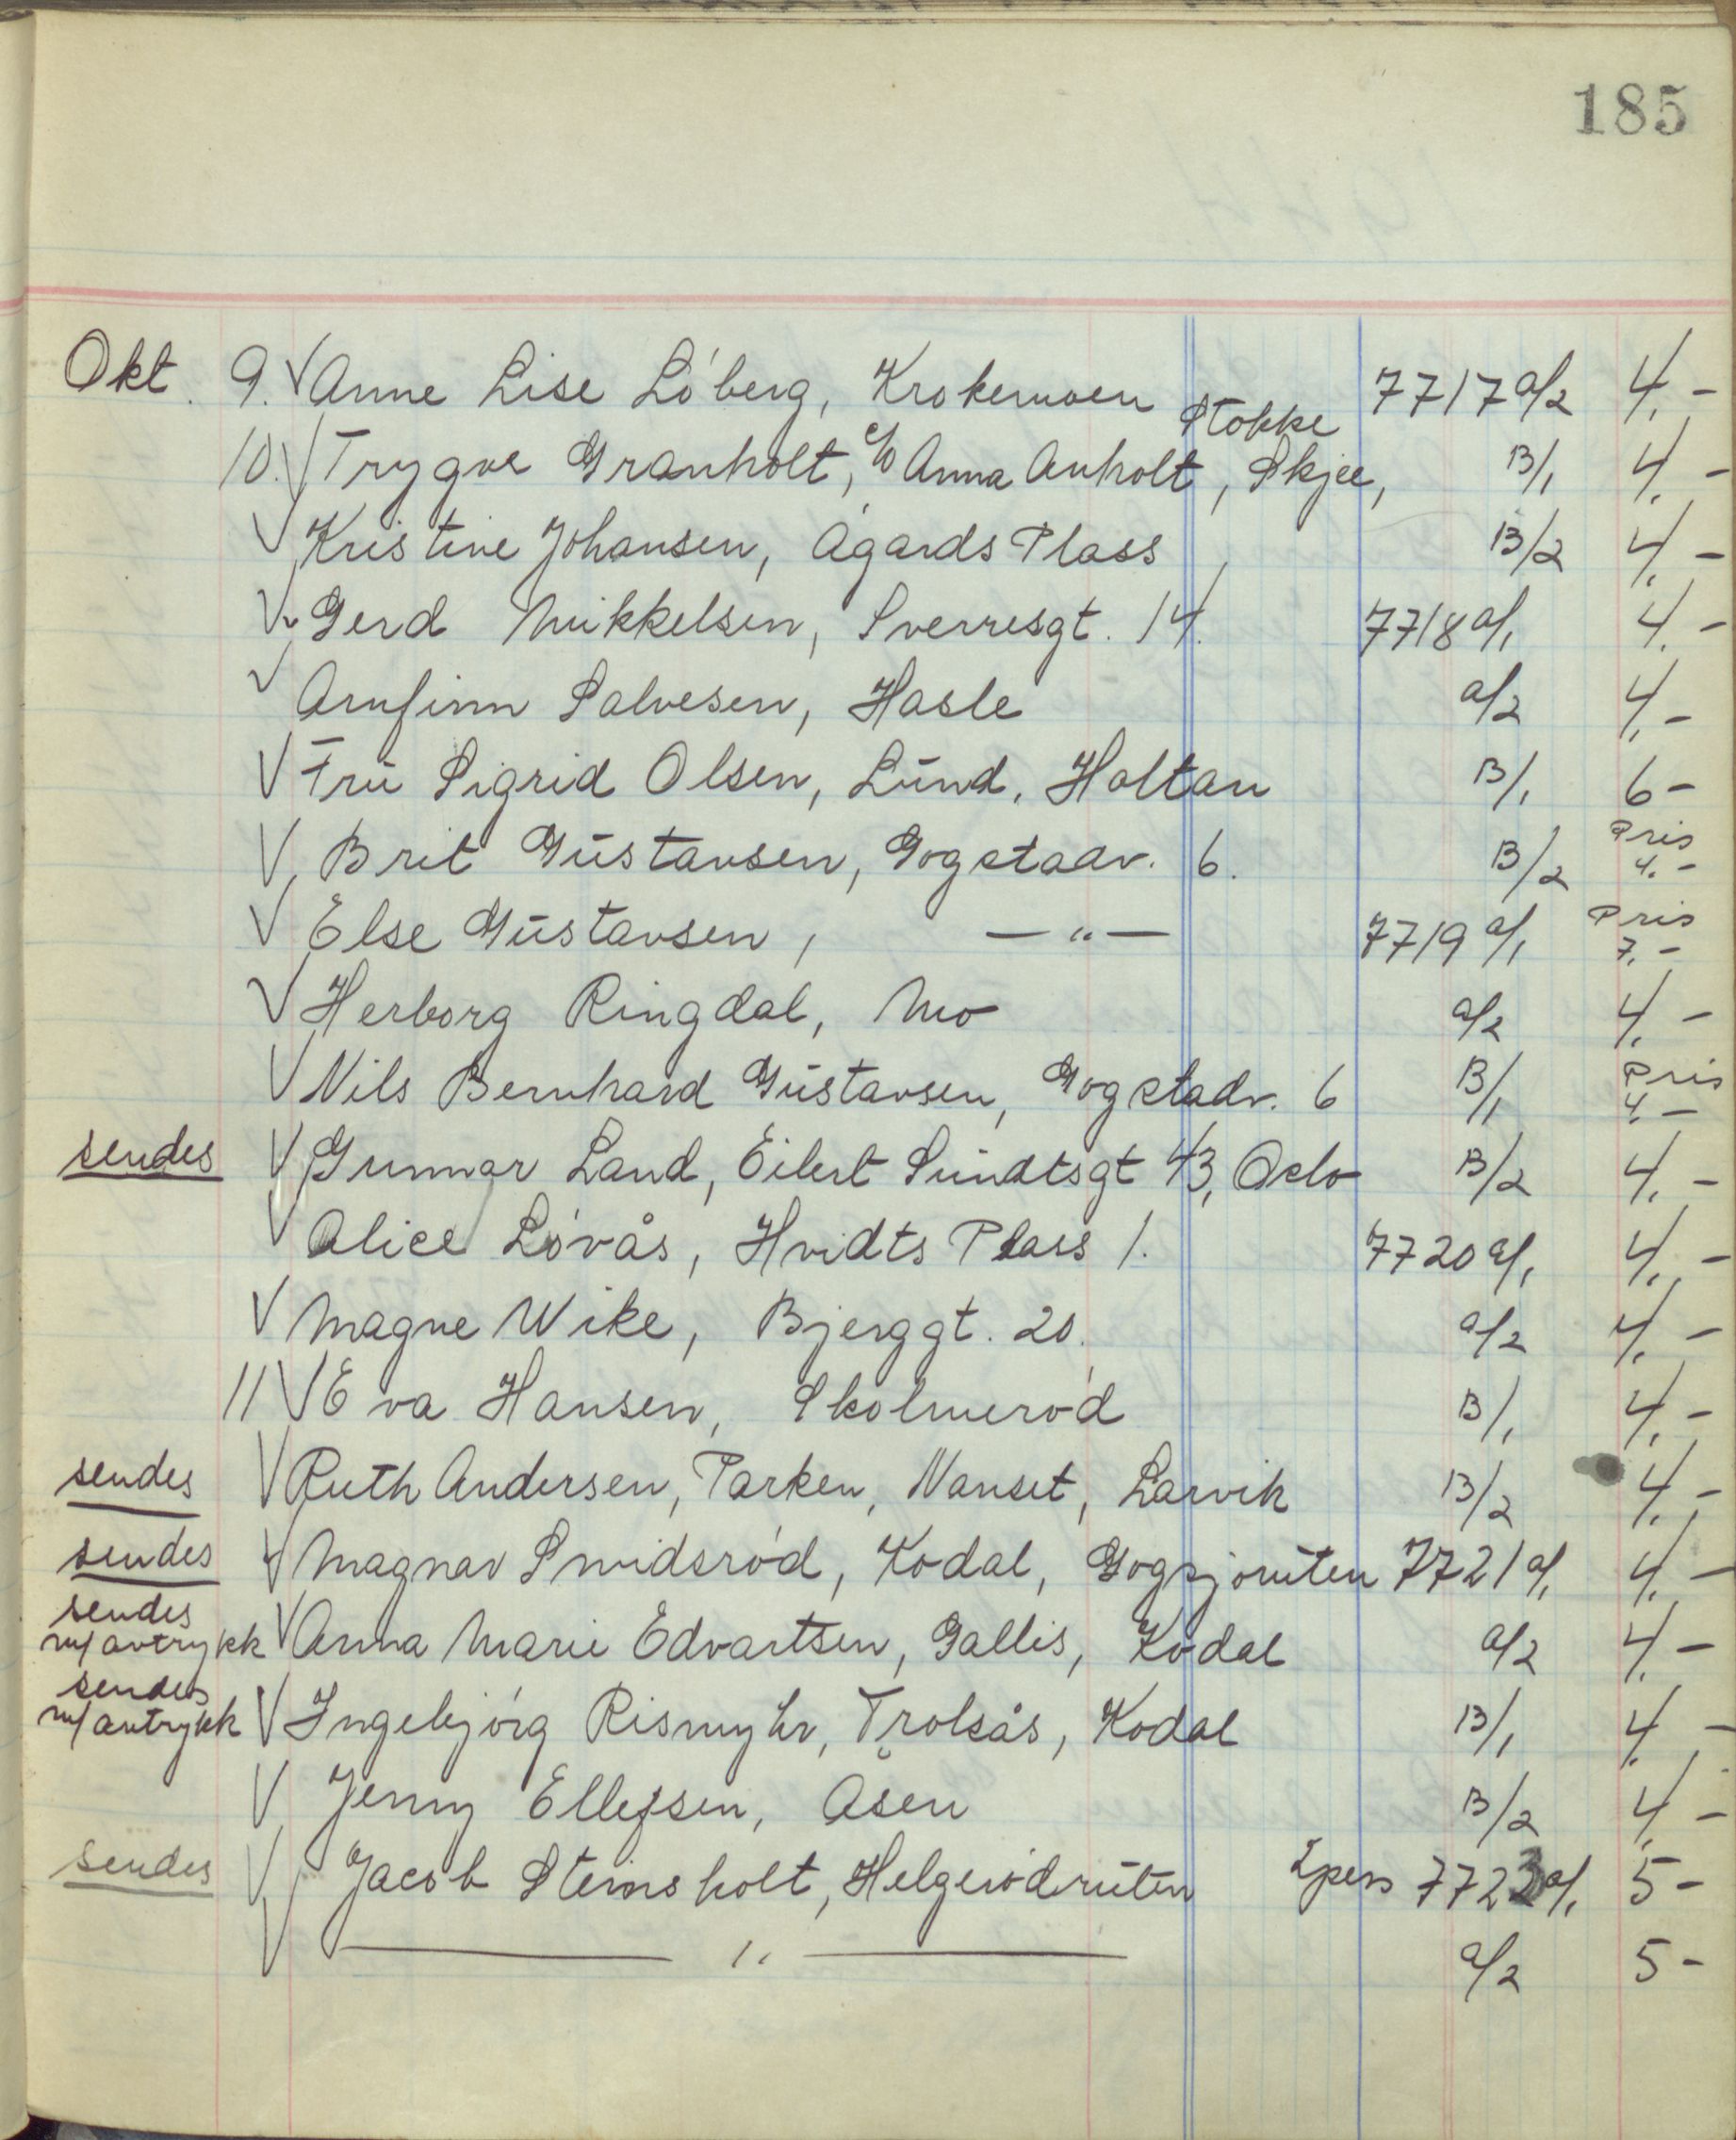 185
Okt. 9. √ Anne Lise Löberg, Krokemoen 7717 a/2 4,-
10. √ Trygve Granholt, c/o Anna Anholt, Skjee, Stokke B/1 4,-
√ Kristine Johansen, Ågards Plass B/2 4,-
√ Gerd Mikkelsen, Sverresgt. 14. 7718 a/1 4,-
√ Arnfinn Salvesen, Hasle a/2 4,-
√ Frū Sigrid Olsen, Lūnd, Holtan B/1 6-
√ Brit Gūstavsen, Gogstadv. 6. B/2 Pris 4.-
√ Else Gūstavsen, —"— 7719 a/1 Pris 7,-
√ Herborg Ringdal, Mo a/2 4,-
√ Nils Bernhard Gūstavsen, Gogstadv. 6 B/1 Pris 4,-
sendes √ Gunnar Land, Eilert Sūndtsgt 43, Oslo B/2 4,-
√ Alice Lövås, Hvidts Plass 1. 7720 a/1 4,-
√ Magne Wike, Bjerggt. 20. a/2 4,-
11 √ Eva Hansen, Skolmeröd B/1 4,-
sendes √ Ruth Andersen, Parken, Nanset, Larvik B/2 4,-
sendes √ Magnar Smidsröd, Kodal, Gogsjörūten 7721 a/1 4,-
sendes m/avtrykk √ Anna Marie Edvartsen, Gallis, Kodal a/2 4,-
sendes m/avtrykk √ Ingebjörg Rismyhr, Trolsås, Kodal B/1 4,-
√ Jenny Ellefsen, Åsen B/2 4,-
sendes √ Jacob Steinsholt, Helgerödrūten 2 pers 7723 a/1 5-
√ —"— a/2 5-